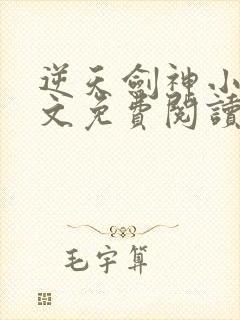 逆天劍神小
文免費閱讀
毛宇算